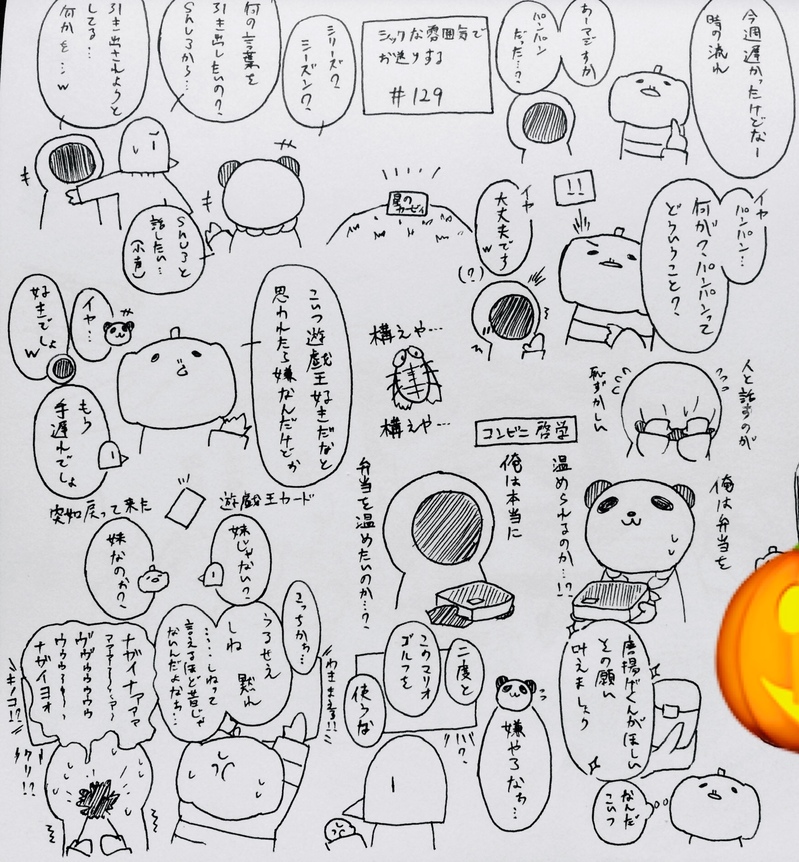 今週遅かったけどなー
時の流れ
あーマですか
パンパン
だった…?
シックな雰囲気で
お送りする
#129
シリーズ?
シーズン?
何の言葉を
引き出したいの?
Shu3から…
引き出されようと
してる…
何かを…w
イヤ
パンパン…
何が?パンパンって
どういうこと?
!!
イヤ
大丈夫です
w
(?)
星の
カービィ
Shu3と
話したい…
(小声)
人と話すのが
恥ずかしい
構えや…
構えや…
こいつ遊戯王好きだなと
思われたら嫌なんだけどか
イヤ…
好きでしょ
w
もう
手遅れでしょ
コンビニ哲学
俺は弁当を
温められるのか…!?
俺は本当に
弁当を温めたいのか…?
遊戯王カード
突如戻って来た
妹じゃない?
妹なのか?
唐揚げくんがほしい
その願い
叶えましょう
なんだ
こいつ
嫌やろなぁ…
二度と
このマリオ
ゴルフを
使うな
さっちかぁ…
うるせえ
しね 黙れ
……しねって
言えるほど昔じゃ
ないんだよなぁ…
ナガイナァァァ
ナガイヨォ
キノコ!?